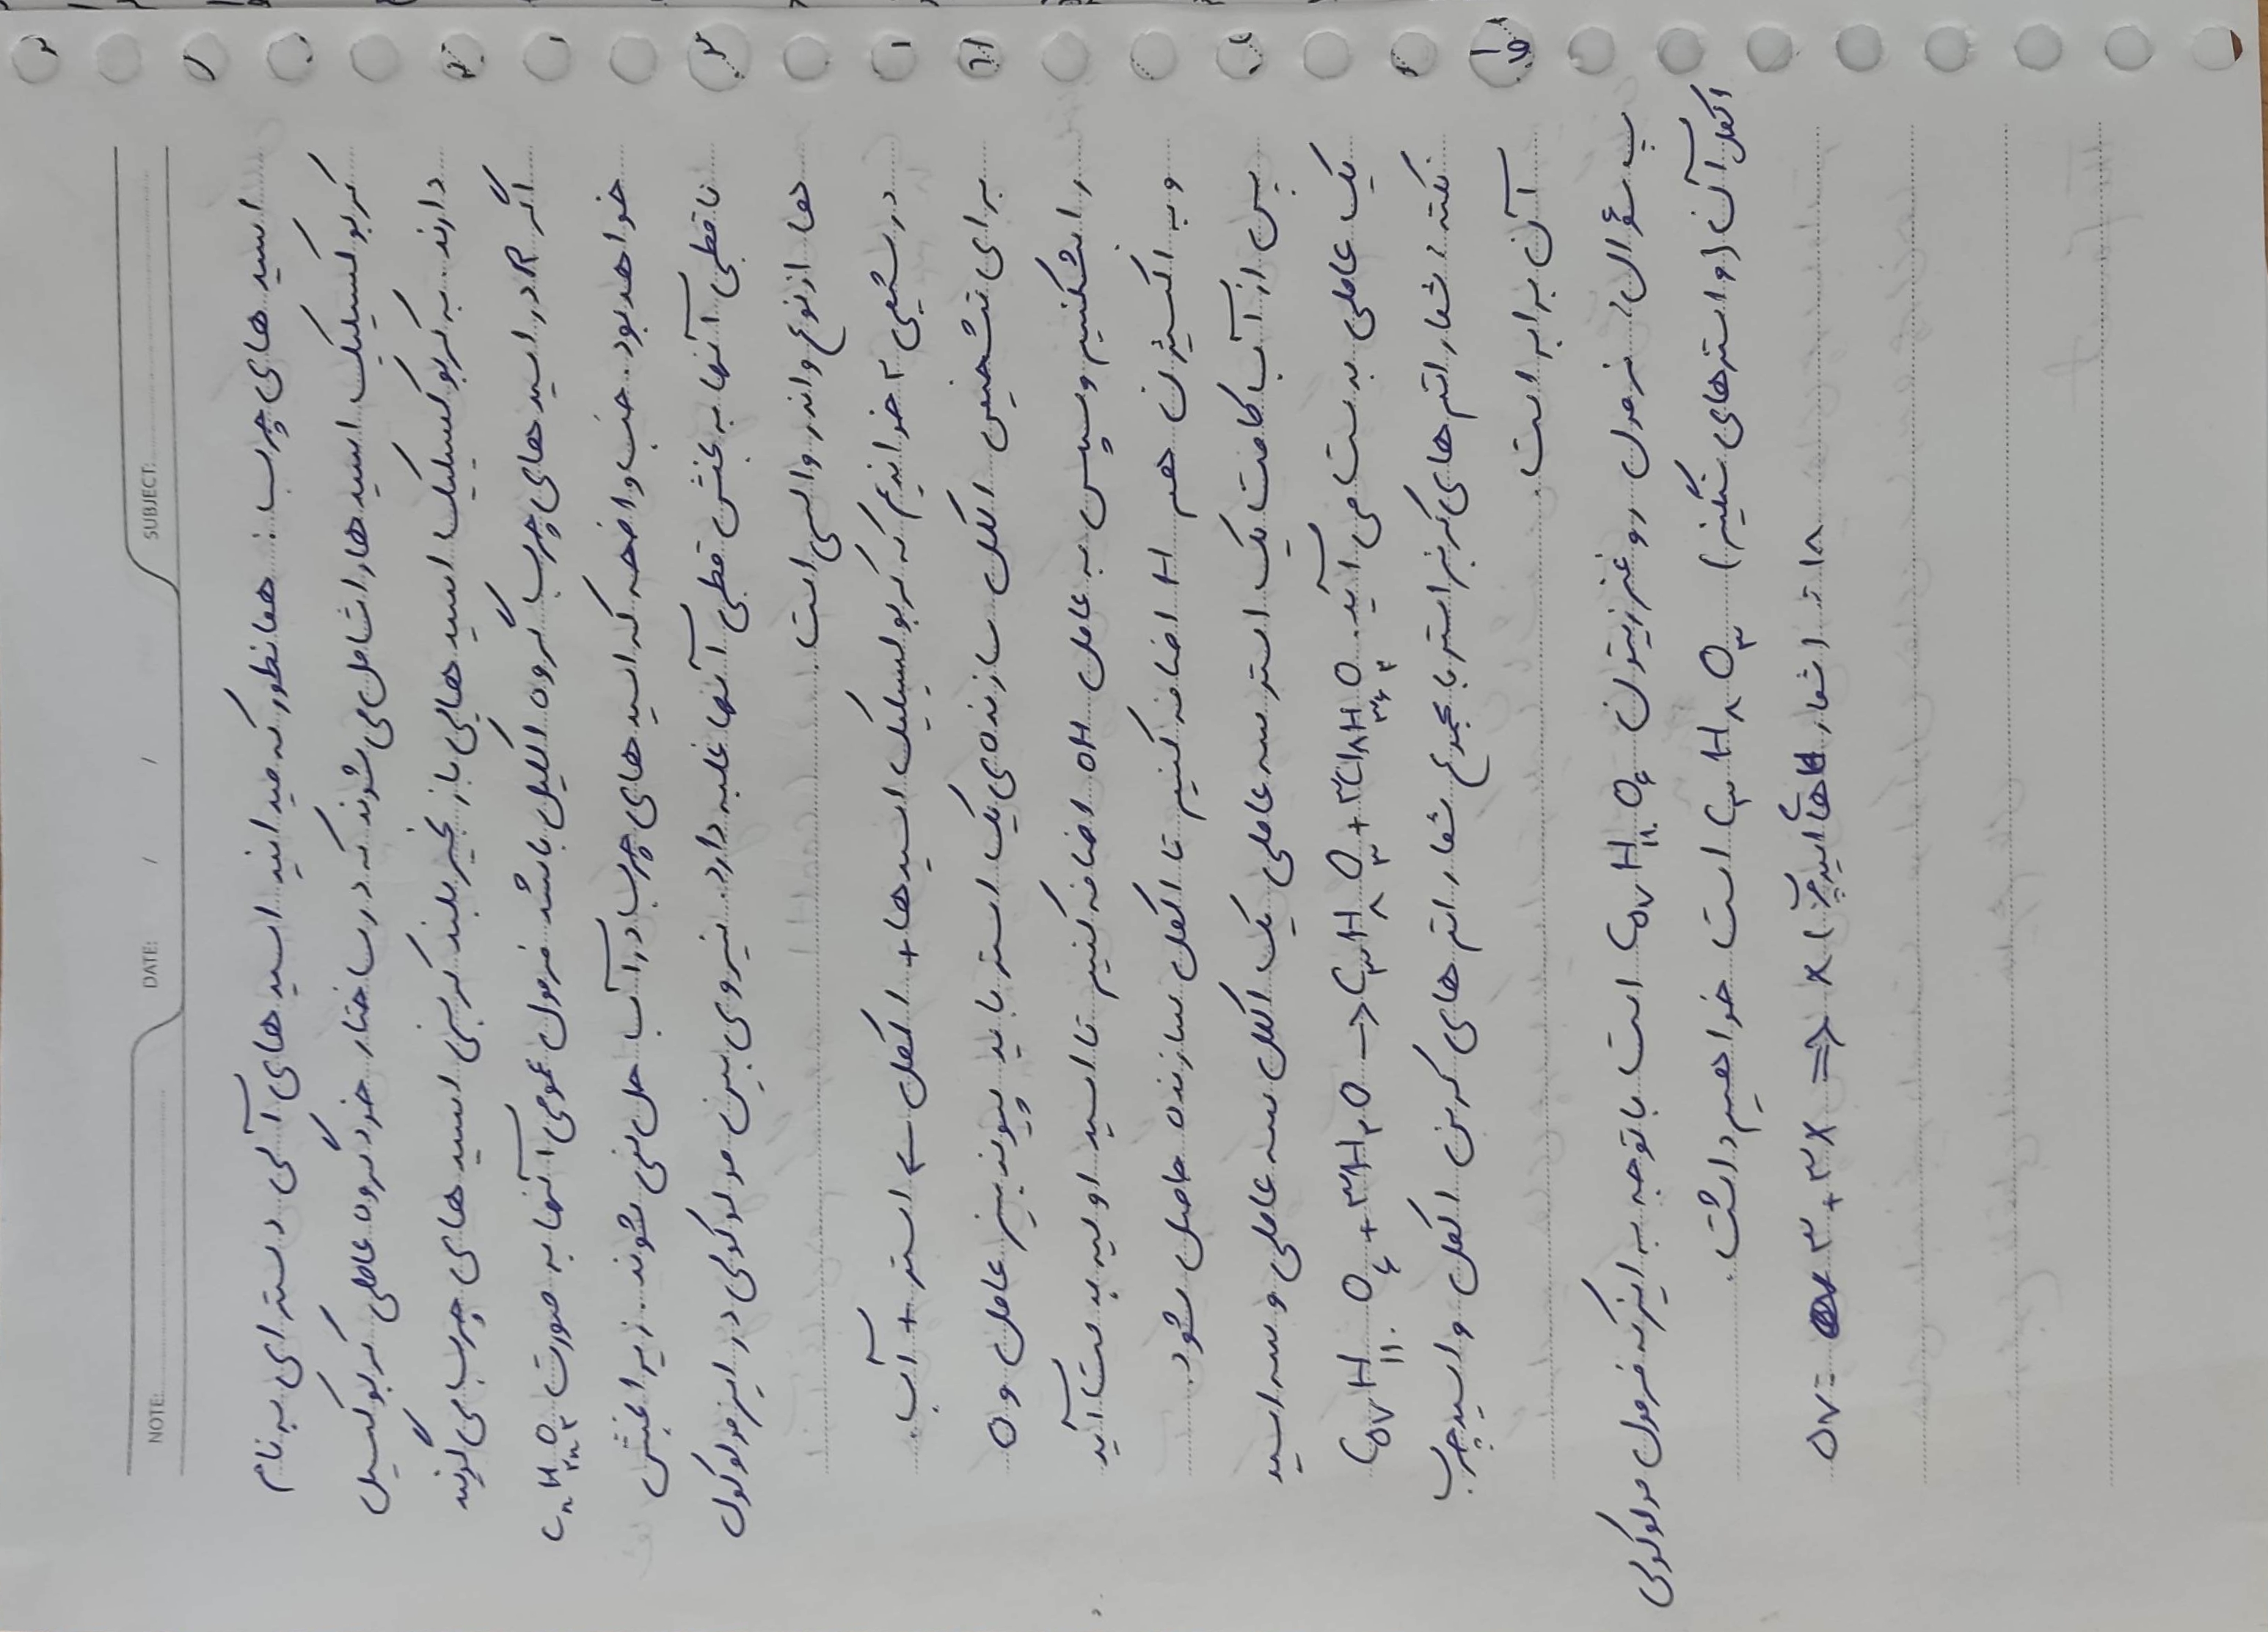 NOTE: DATE: / / SUBJECT:
اسید های چرب : همانطور که میدانید اسید های آلی دسته ای به نام
کربوکسیلیک اسید ها را شامل می شوند که در ساختار خود گروه عاملی کربوکسیل
دارند. به کربوکسیلیک اسید هایی با زنجیر بلند کربنی اسید های چرب می گویند
اگر R در اسید های چرب گروه الکیل باشد فرمول عمومی آنها به صورت CnH2nO2
خواهد بود. خب واضحه که اسید های چرب در آب حل نمی شوند. زیرا بخش
ناقطبی آنها به بخش قطبی آنها غلبه دارد. نیروی بین مولکولی در این مولکول
ها از نوع واندروالسی است.
در شیمی ۲ خواندیم که کربوسیلیک اسیدها + الکل → استر + آب.
برای تشخیص الکل سازنده ی یک استر باید پیوند بین عامل و O
را بشکنیم و سپس به عامل OH اضافه کنیم تا اسید اولیه بدست آید
و به اکسیژن هم H اضافه کنیم تا الکل سازنده حاصل شود.
پس از آبکافت یک استر سه عاملی یک الکل سه عاملی و سه اسید
یک عاملی بدست می آید. C۵۷H۱۱۰O۶ + ۳H۲O → C۳H۸O۳ + ۳C۱۸H۳۶O۲
نکته: شمار اتم های کربن استر با مجموع شمار اتم های کربن الکل و اسید چرب
آن برابر است.
پ سؤال: فرمول روغن زیتون C۵۷H۱۱۰O۶ است با توجه به اینکه فرمول مولکولی
الکل آن (و استرهای سنگین) C۳H۸O۳ است خواهیم داشت.
۵۷ = ۳ + ۳x ⇒ x = ۱۸ (شمار C های اسید چرب)